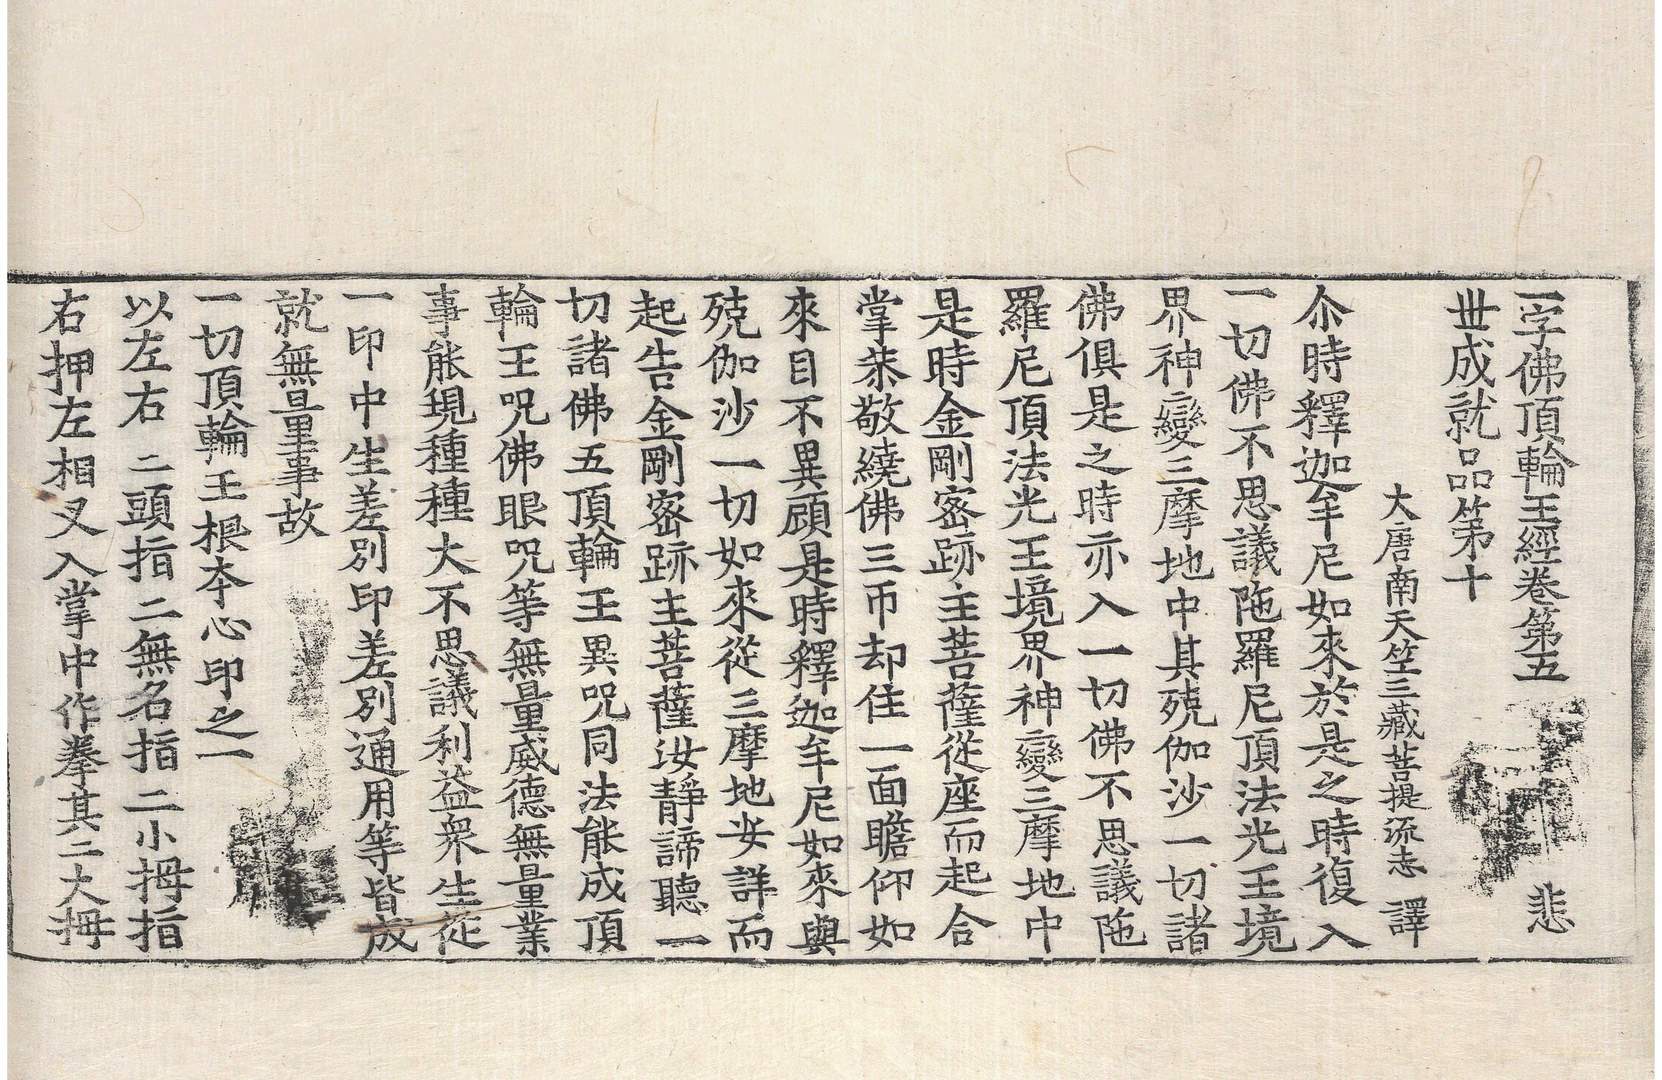 一字佛頂輪王經卷第五 悲
世成就品第十
大唐南天竺三藏菩提流志 譯
尒時釋迦牟尼如來於是之時復入
一切佛不思議陁羅尼頂法光王境
界神變三摩地中其殑伽沙一切諸
佛俱是之時亦入一切佛不思議陁
羅尼頂法光王境界神變三摩地中
是時金剛密跡主菩薩從座而起合
掌恭敬繞佛三帀却住一面瞻仰如
來目不異顧是時釋迦牟尼如來與
殑伽沙一切如來從三摩地安詳而
起告金剛密跡主菩薩汝靜諦聽一
切諸佛五頂輪王異呪同法能成頂
輪王呪佛眼呪等無量威德無量業
事能現種種大不思議利益衆生從
一印中生差別印差別通用等皆成
就無量事故
一切頂輪王根夲心印之一
以左右二頭指二無名指二小拇指
右押左相叉入掌中作拳其二大拇